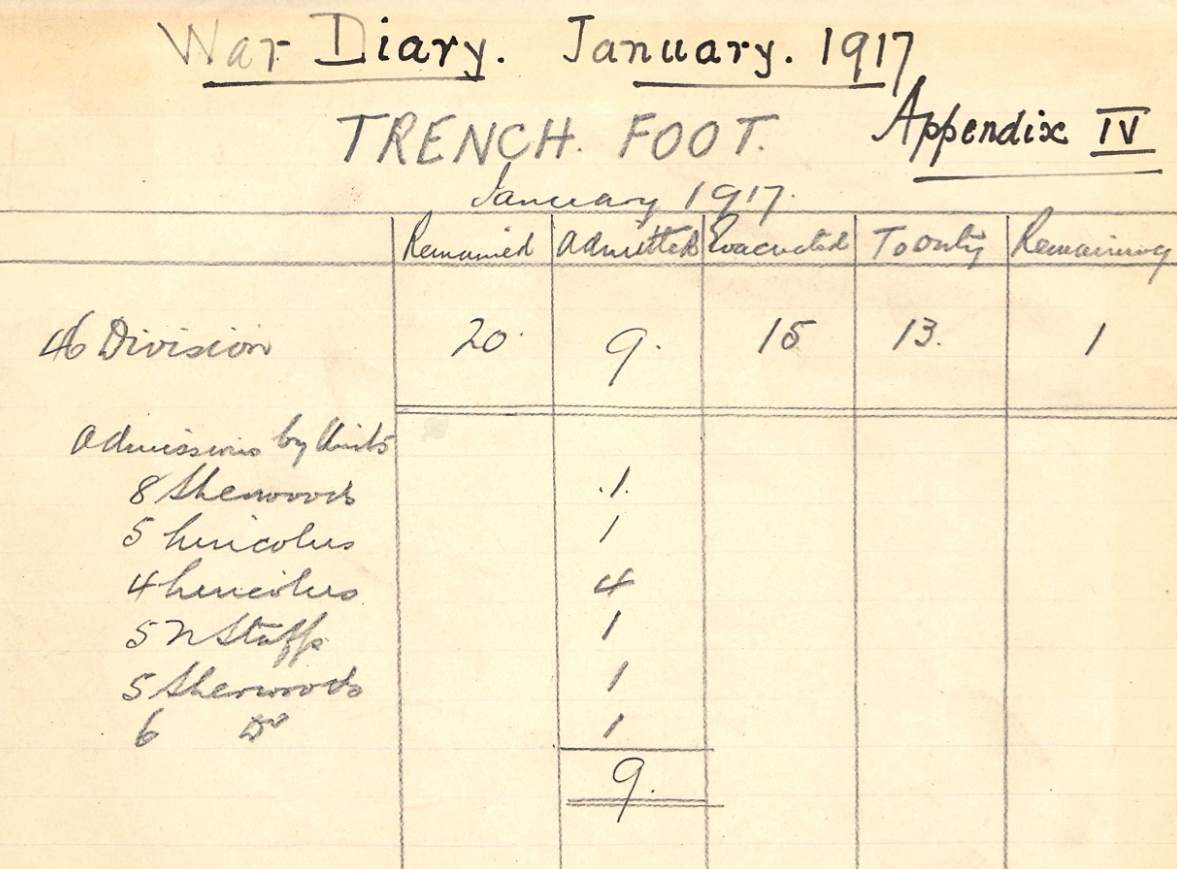 War Diary. January. 1917
TRENCH. FOOT.
Appendix IV
January 1917.
Remained Admitted Evacuated To Duty Remaining
46 Division 20 9. 15 13. 1
Admissions by Units
8 Sherwoods .1.
5 Lincolns 1
4 Lincolns 4
5 N Staffs 1
5 Sherwoods 1
6 Do 1
9.